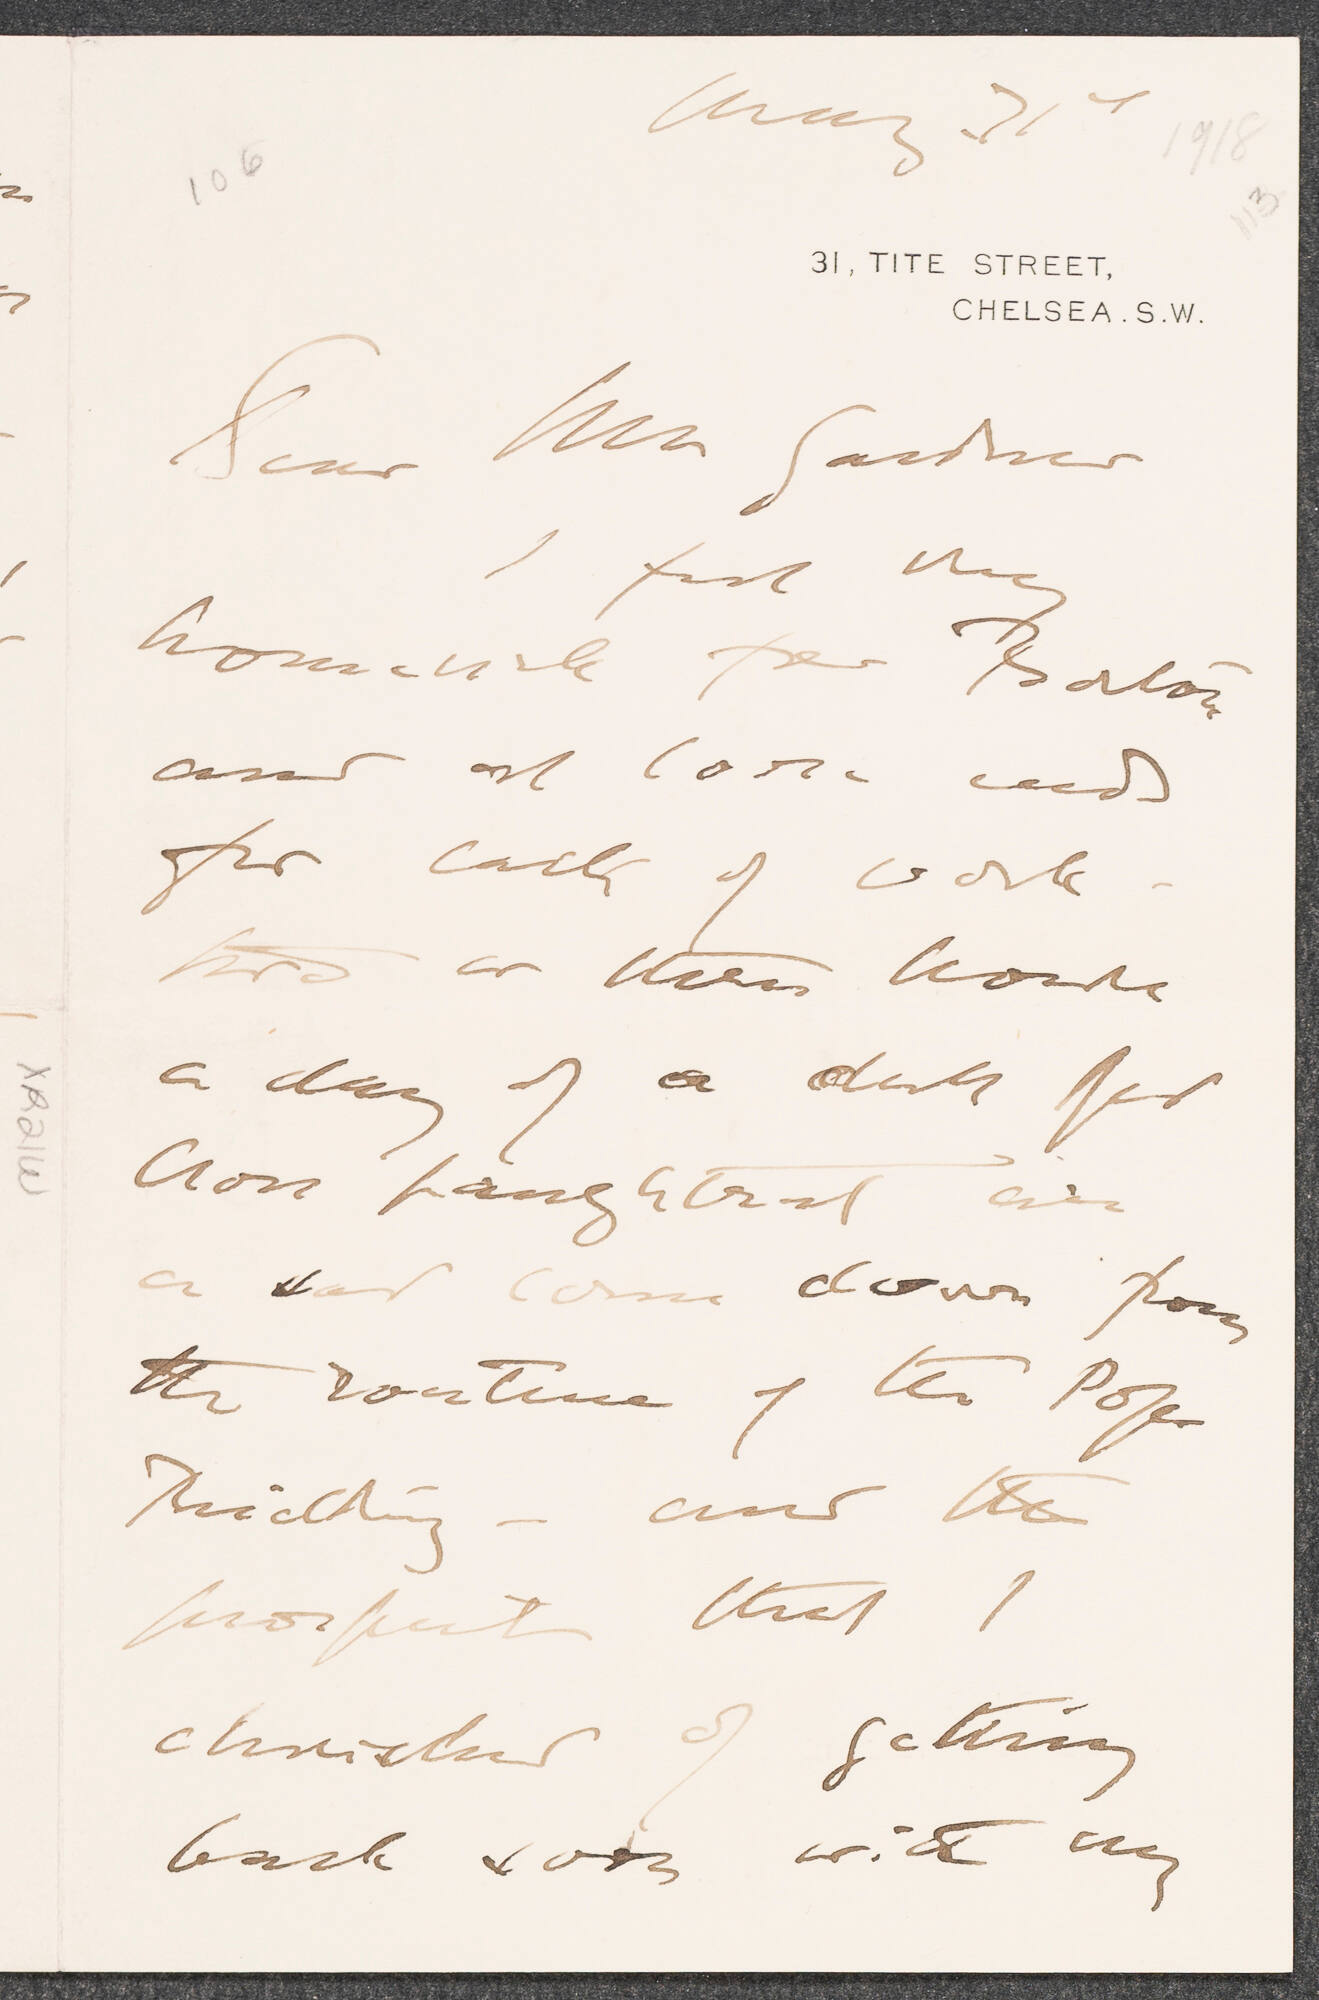 May 31st 1918
106
113
31, TITE STREET,
CHELSEA. S.W.
Dear Mrs Gardner
I feel very
homesick for Boston
and at loose ends
for lack of work -
two or three hours
a day of a
a sad come down from
the routine of the Pope
Building - and the
prospect that I
cherished of getting
back soon with my